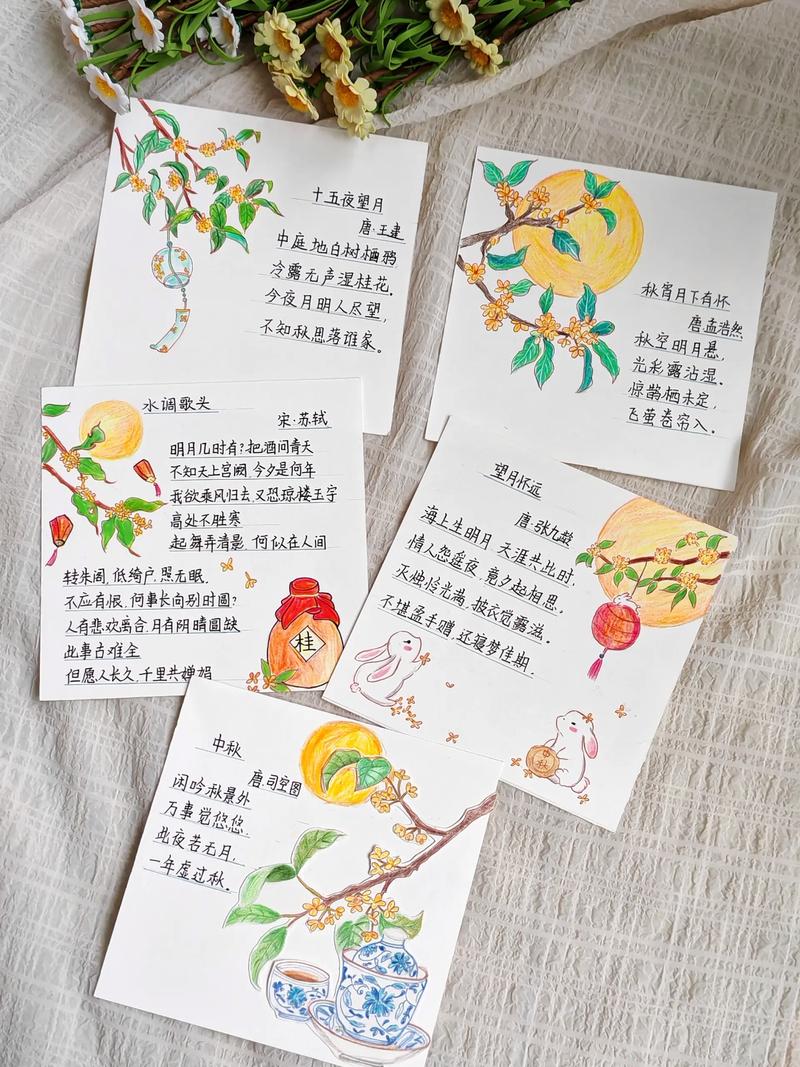 十五夜望月
唐·王建
中庭地白树栖鸦
冷露无声湿桂花。
今夜月明人尽望,
不知秋思落谁家。
秋宵月下有怀
唐孟浩然
秋空明月悬,
光彩露沾湿。
惊鹊栖未定,
飞萤卷帘入。
水调歌头
宋·苏轼
明月几时有?把酒问青天
不知天上宫阙,今夕是何年
我欲乘风归去,又恐琼楼玉宇
高处不胜寒
起舞弄清影,何似在人间
转朱阁,低绮户,照无眠,
不应有恨,何事长向别时圆?
人有悲欢离合,月有阴晴圆缺
此事古难全
但愿人长久,千里共婵娟
桂
望月怀远
唐·张九龄
海上生明月,天涯共此时,
情人怨遥夜,竟夕起相思。
灭烛怜光满,披衣觉露滋。
不堪盈手赠,还寝梦佳期.
秋
中秋
唐·司空图
闲吟秋景外
万事觉悠悠.
此夜若无月,
一年虚过秋。